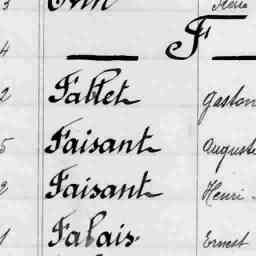 F
2 Fallet Gaston
5 Faisant Auguste
2 Faisant Henri
Falais Ernest